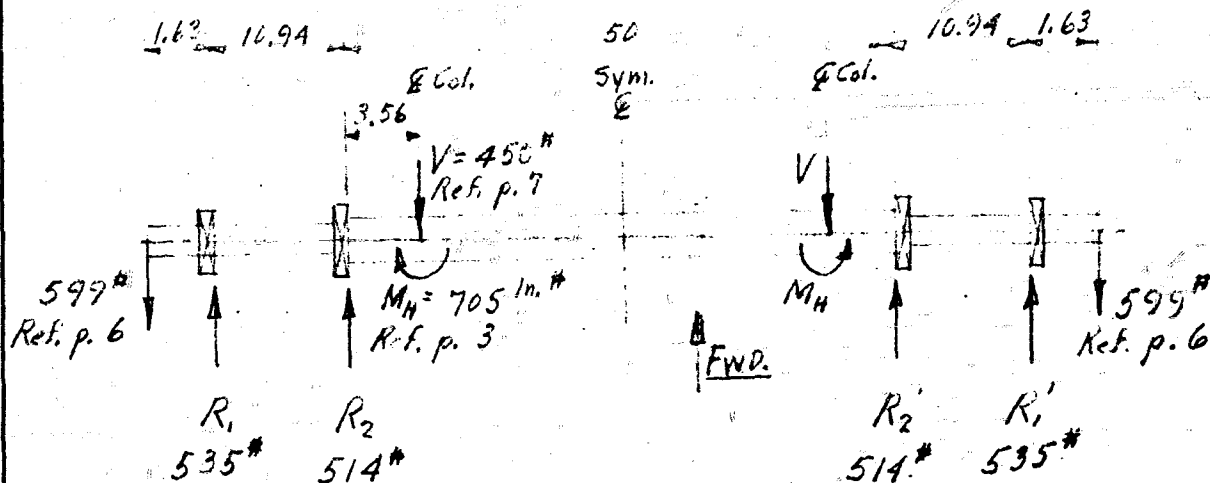 1.63 10.94 50 10.94 1.63
Sym.
℄ Col. ℄ ℄ Col.
3.56
V = 450#
Ref. p. 7
V
599#
Ref. p. 6
M_H = 705 in.#
Ref. p. 3
M_H
599#
Ref. p. 6
FWD.
R₁ R₂ R₂' R₁'
535# 514# 514# 535#